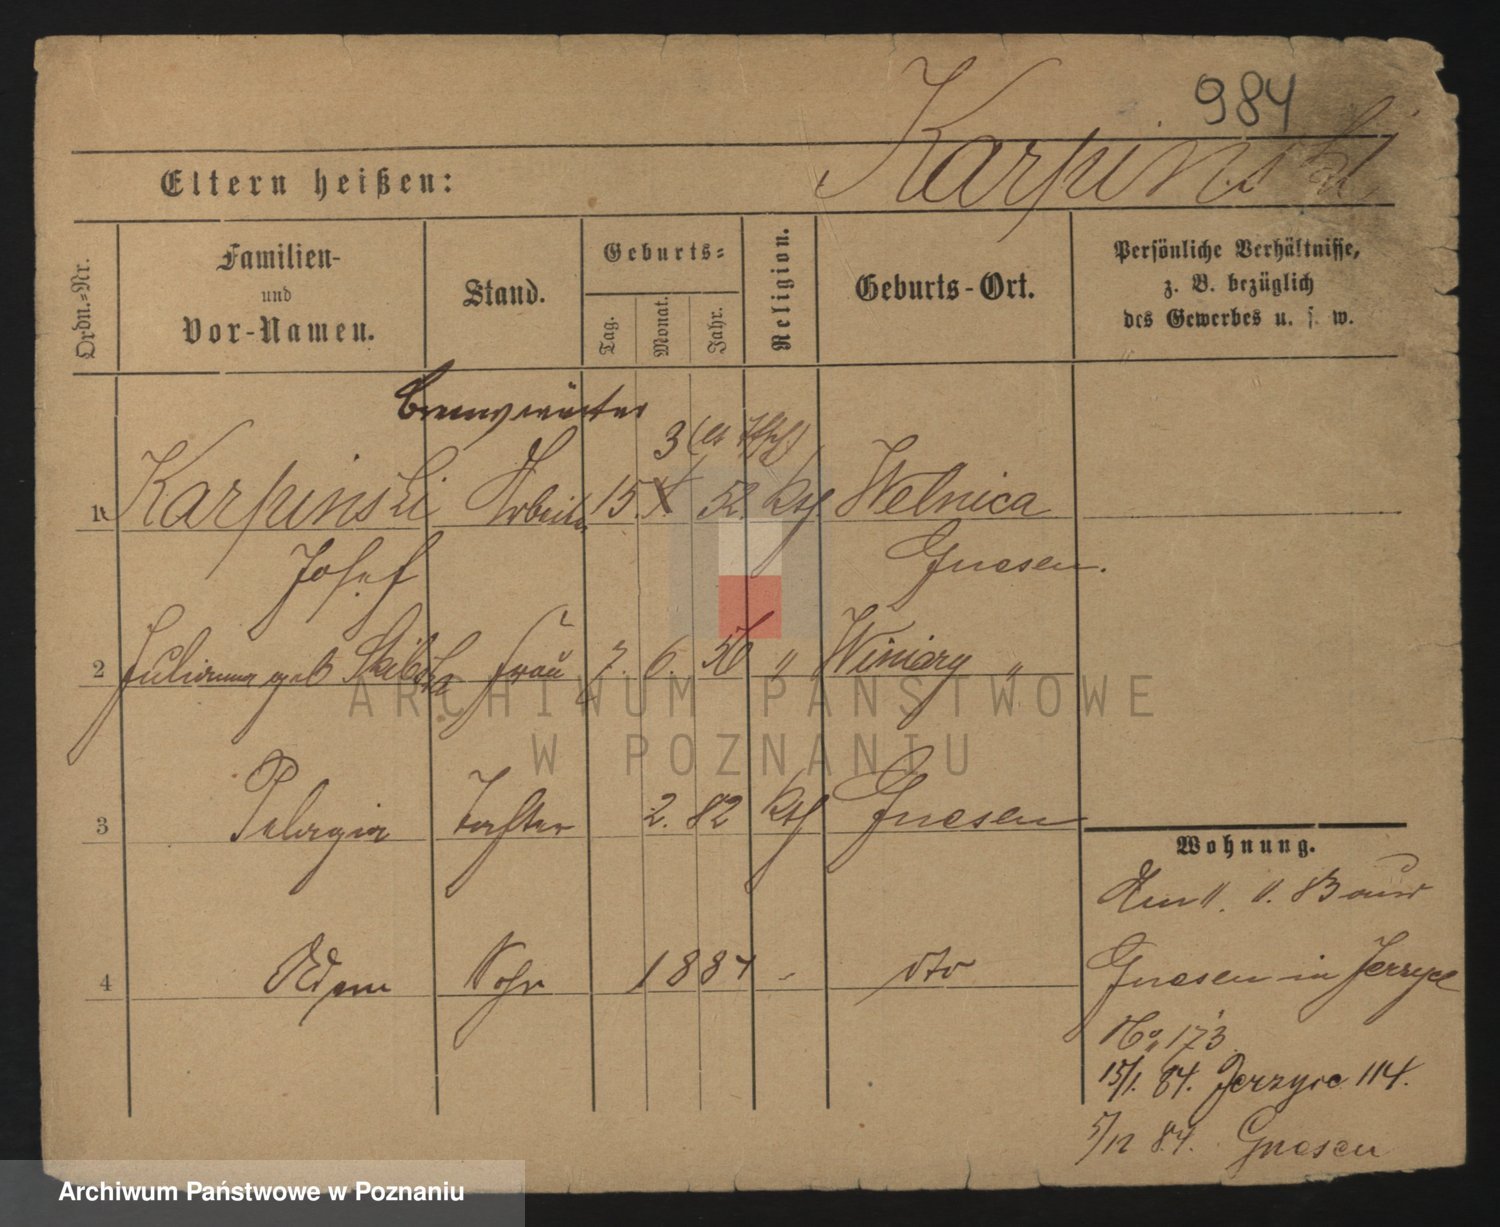 984
Karpinski
Eltern heißen:
Ordn.=Nr.
Familien-
und
Vor-Namen.
Stand.
Geburts=
Tag.
Monat.
Jahr.
Religion.
Geburts-Ort.
Persönliche Verhältnisse,
z. B. bezüglich
des Gewerbes u. s. w.
3
1 Karpinski Arbeiter 15. X. 52. kth Welnica
Josef Gnesen.
2 Julianna geb Frau 7. 6. 56 " Winiary "
3 Pelagia Tochter 2. 82 kth Gnesen
4 Adam Sohn 1884 - dto
Wohnung.
Gnesen in Jerzyce
No 173
15/1. 84. Jerzyce 114.
5/12 84. Gnesen
ARCHIWUM PAŃSTWOWE
W POZNANIU
Archiwum Państwowe w Poznaniu